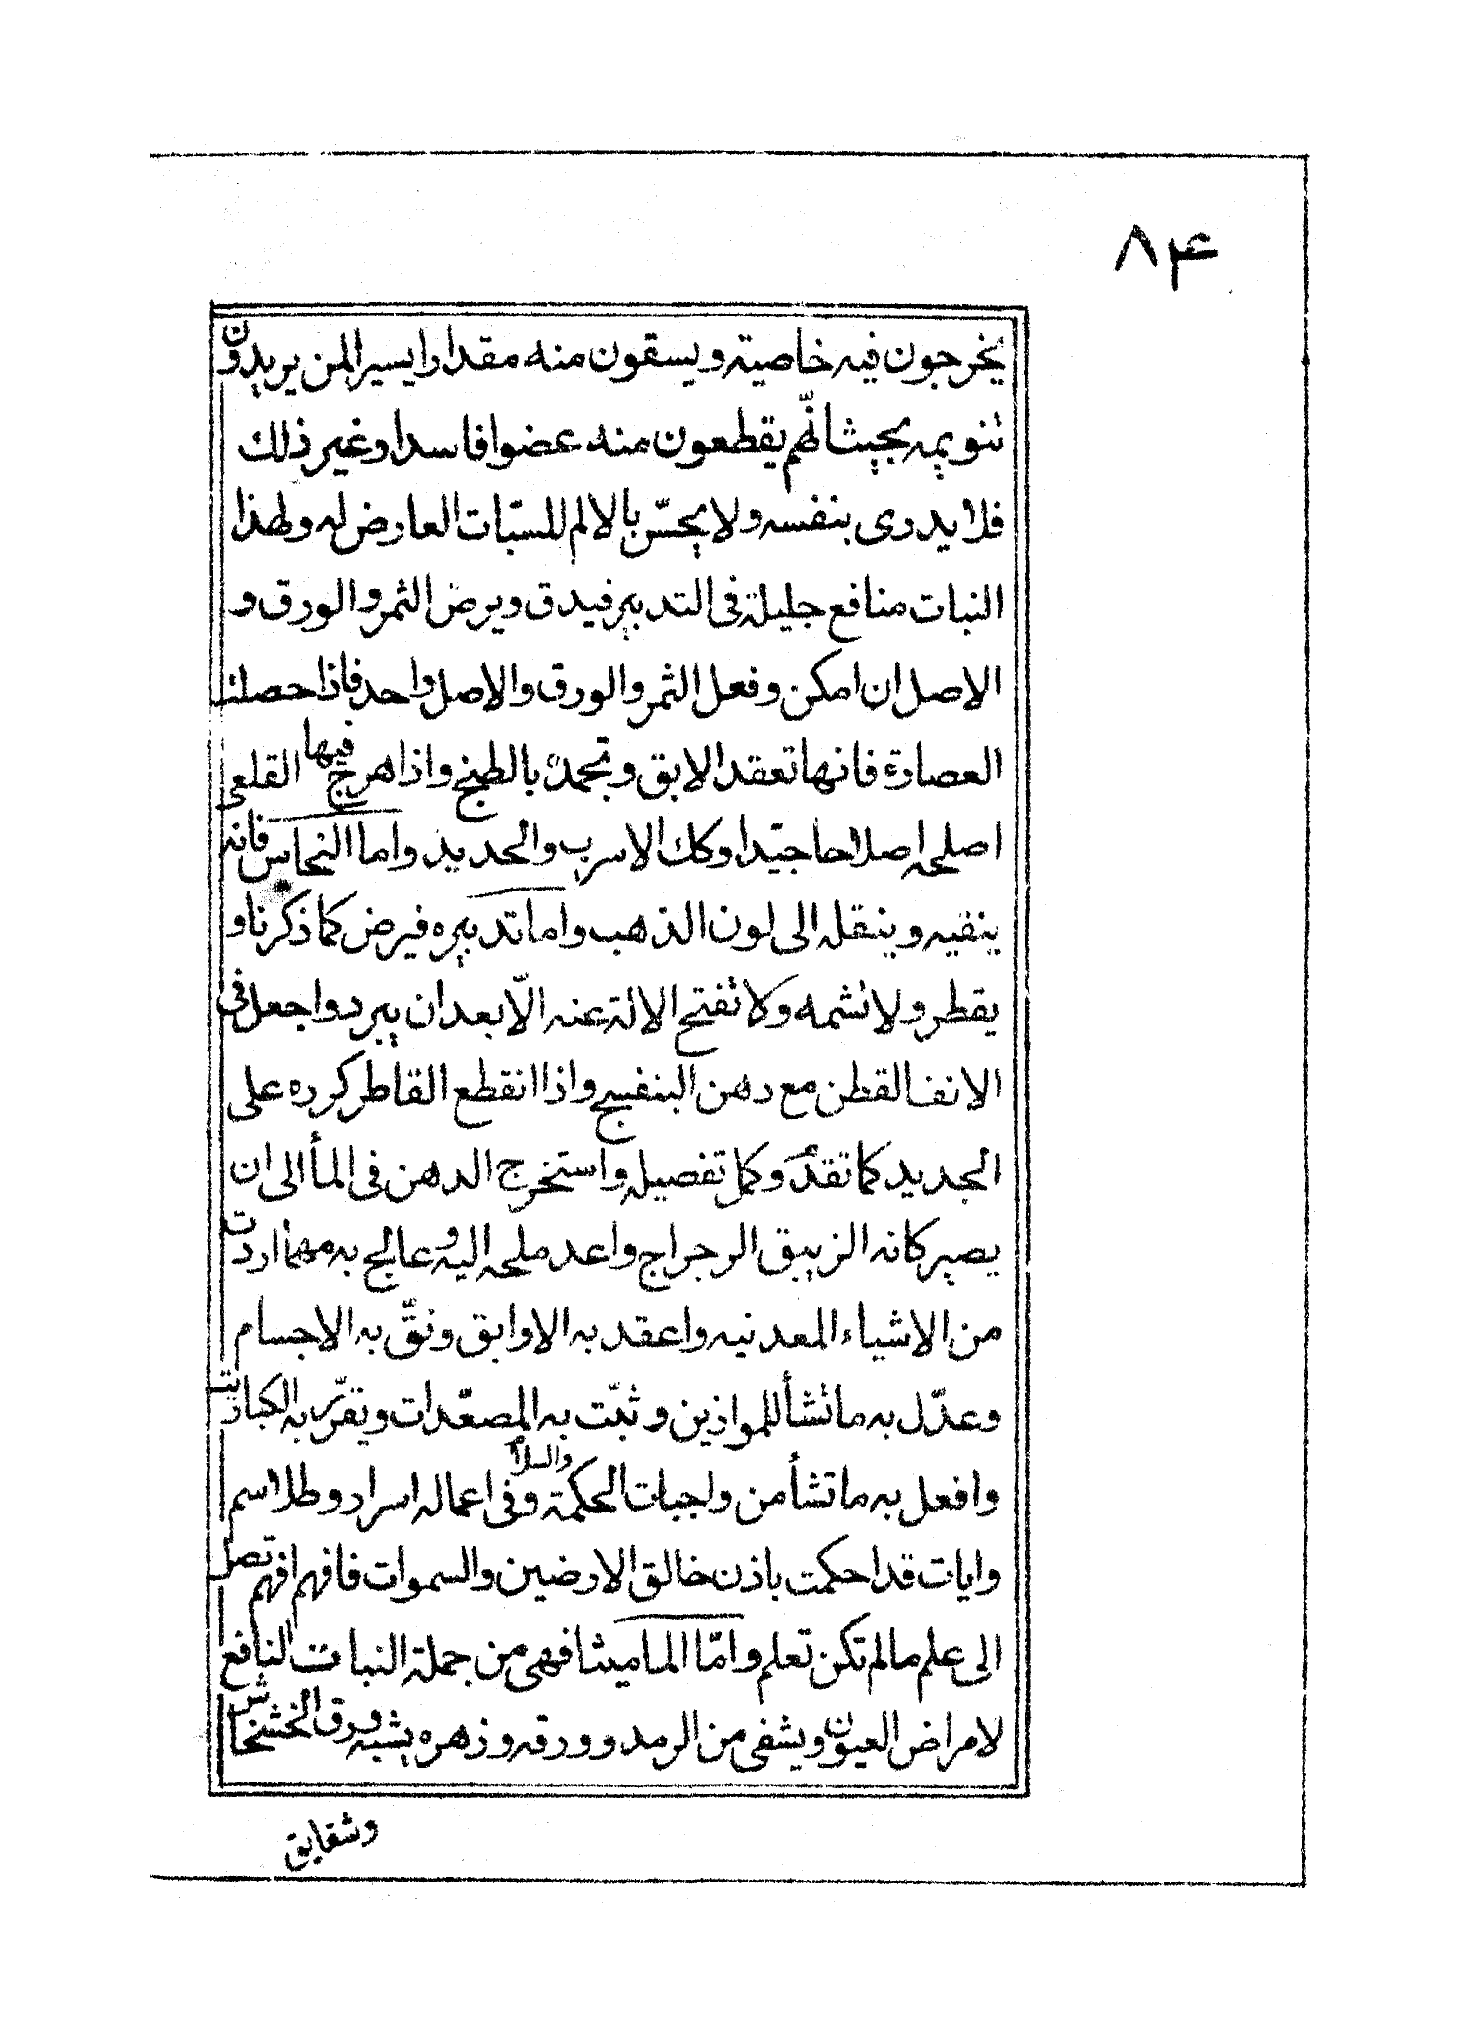 ۸۴
يخرجون فيه خاصية ويسقون منه مقدارا يسيرا لمن يريدون
تنويمه بحيث انهّم يقطعون منه عضوا فاسدا وغير ذلك
فلا يدرى بنفسه ولا يحسّ بالالم للسبّات العارض له ولهذا
النبات منافع جليلة فى التدبير فيدق ويرض الثمر والورق و
الاصل ان امكن وفعل الثمر والورق والاصل واحد فاذا حصلت
العصارة فانها تعقد الابق وتجمده بالطبخ واذا هرج فيها القلعى
اصلحه اصلاحا جيّدا وكك الاسرب والحديد واما النحاس فانه
ينقيه وينقله الى لون الذهب واما تدبيره فيرض كما ذكرنا و
يقطر ولا تشمه ولا تفتح الالة عنه الّا بعد ان يبرد واجعل فى
الانف القطن مع دهن البنفسج واذا انقطع القاطر كرره على
الجديد كما تقدم وكمل تفصيله واستخرج الدهن فى المأ الى ان
يصير كانه الزيبق الرجراج واعد ملحه اليه و عالج به مهما اردت
من الاشياء المعدنيه واعقد به الاوابق ونقّ به الاجسام
وعدّل به ما تشأ للموازين وثبّت به المصعّدات وقرّب به الكباريت
وافعل به ما تشأ من واجبات الحكمة والسلام وفى اعماله اسرار وطلاسم
وايات قد احكمت باذن خالق الارضين والسموات فافهم افهم تصل
الى علم مالم تكن تعلم وامّا الماميثا فهى من جملة النبات النافع
لامراض العيون ويشفى من الرمد وورقه وزهره يشبه ورق الخشخاش
وشقايق